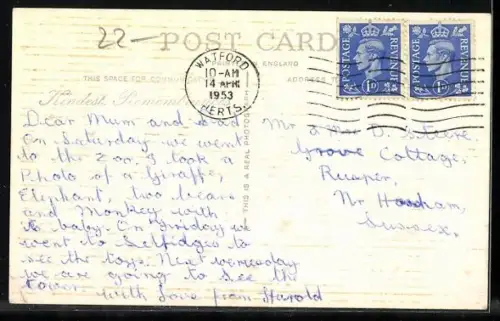 22-
POST CARD
PRINTED IN ENGLAND
THIS SPACE FOR COMMUNICATION
ADDRESS
Kindest Rememb
WATFORD
10-AM
14 APR
1953
HERTS.
POSTAGE REVENUE
1D
POSTAGE REVENUE
1D
THIS IS A REAL PHOTOGRAPH
Dear Mum and dad
On Saturday we went
to the Zoo. I took a
Photo of a Giraffe,
Elephant, two bears
and Monkey with
baby. On Friday we
went to Selfidges to
see the toys. Next wenesday
we are going to see the
tower with love from Harold
Mr & Mrs D.
Grove Cottage,
Rusper,
Nr Horsham,
Sussex.